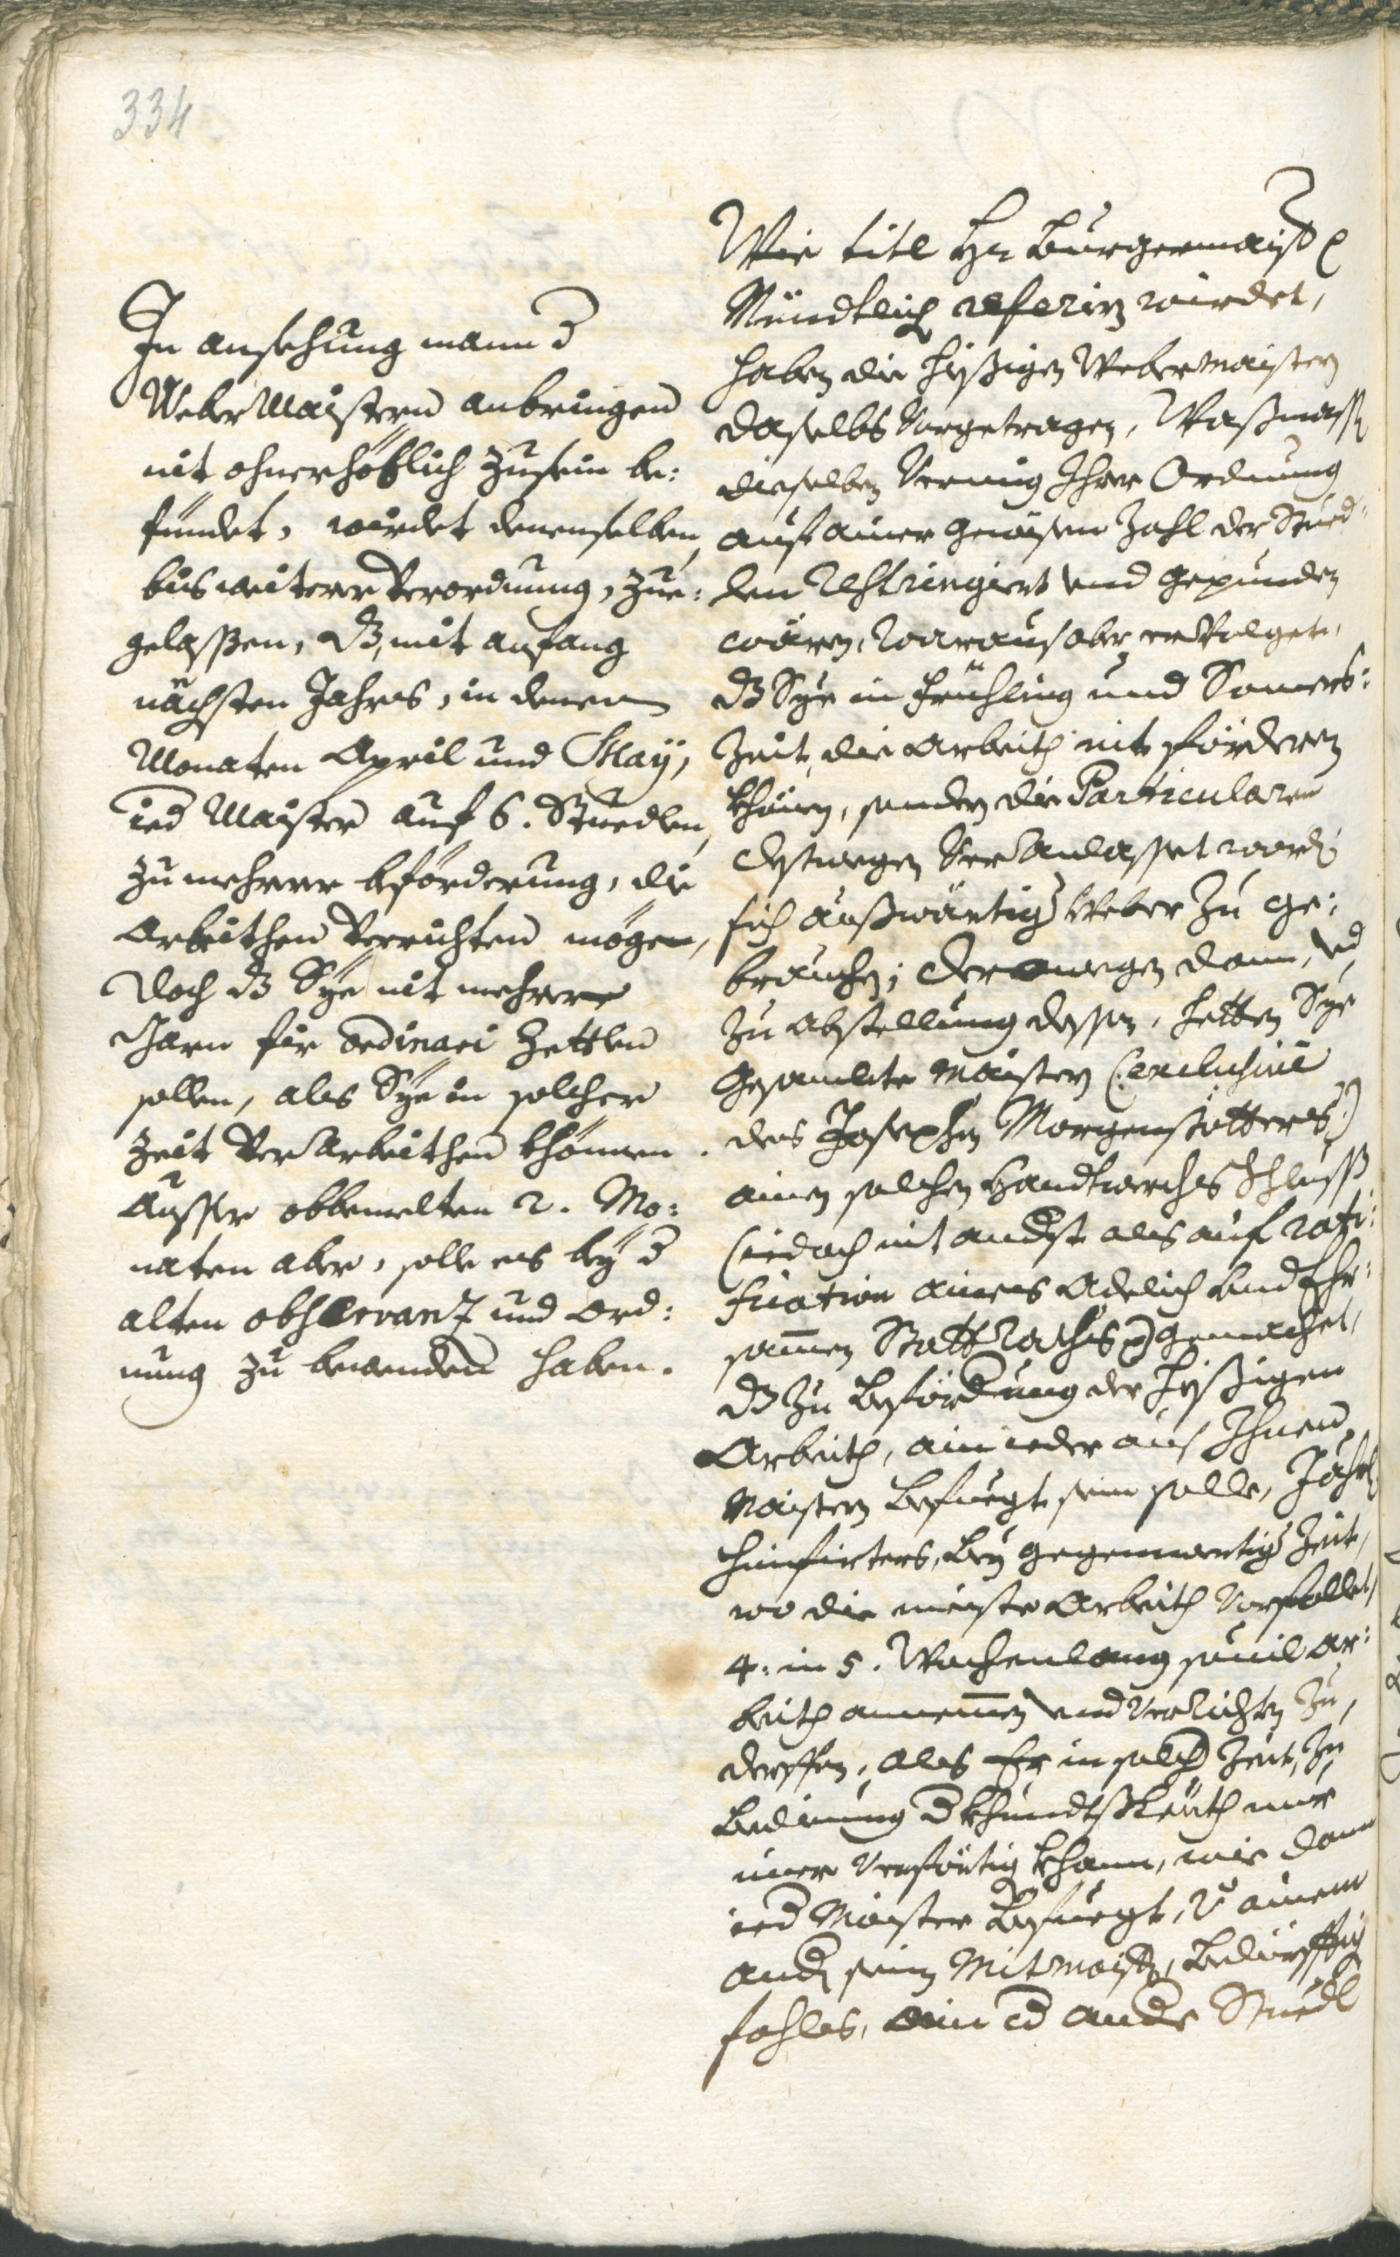 334
In ansehung mann d
Weber Maistern anbringen
nit ohnerhöblich zusein be:
fündet, würdet denenselben,
bis weiterer Verordnung, zue:
gelassen, dz, mit anfang
nächsten Jahrs, in denen
Monaten April und May,
ied Maister auf 6. Stuedlen,
zu mehrerer beförderung, die
Arbeithen Verrichten mögen,
Doch dz Sye nit mehrere
Garn für ordinari Zettlen
sollen, als Sye in solcher
Zeit Verarbeithen khönnen.
Ausser obbemelten 2. Mo:
naten aber, solle es bey d
alten observanz und Ord:
nung zu bewenden haben.
Wie titl Hr Burgermaist
Mündtlich referirn würdet,
haben die hießigen Webermaistern
daselbs Vorgetragen, Waßmassen
dieselben Vermig Ihrer Ordnung
auf ainer gewisen Zahl der Stued:
len restringiert und gepunden
wären, warauß aber ervolget,
dz Sye in Früehling und Somers:
Zeit, die Arbeith nit förderen
khönen, sonder die Particularen
destwegen Veranlasset worden
sich außwärtig Weber zu ge:
brauchen; Derowegen dann, und
zu abstellung dessen, hetten Sye
Gesambte Maistern (: exclusivè
des Josephen Morgenstotters :)
ainen solchen Handtwerchs Schluss
(: iedoch nit andst als auf rati:
fication aines Adelich und Ehr:
samen Statt Raths :) gemachet,
dz zu Beförderung der hießigen
Arbeith, ain ieder aus Ihnen
Maistern befuegt sein solle, Jährl:
hinfirters, bey gegenwertig Zeit,
wo die meiste Arbeith Vorfallet,
4: in 5. Wochenlang souil Ar:
beith annemen und Verrichten zu
derffen, als Er in solch Zeit, zu
bedienung d Khundtsleuth nur
imer Verförtig khann, wie dann
ied Maister befuegt, v. ainem
andn seinen Mitmaistern, bedürfftig
fahls, ain od ander Stuedl